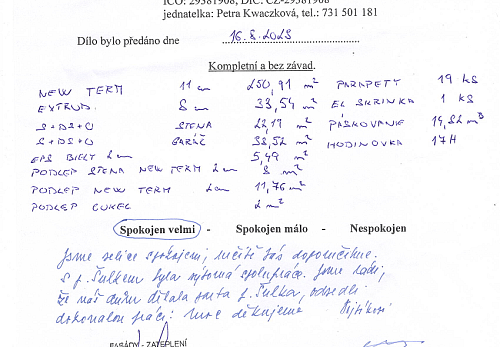 IČO: 29381908, DIČ: CZ-29381908
jednatelka: Petra Kwaczková, tel.: 731 501 181
Dílo bylo předáno dne 16.8.2023
Kompletní a bez závad.
NEW TERM 11 cm 250,91 m² PARAPETY 19 KS
EXTRUD. 8 cm 33,54 m² EL SKRINKA 1 KS
S+DS+O STENA 22,19 m² PÁSKOVANIE 19,82 m
S+DS+O GARÁČ 33,52 m² HODINOVKA 17H
EPS BIELY 2 cm 5,49 m²
PODLEP STENA NEW TERM 2 cm 8 m²
PODLEP NEW TERM 2 cm 11,76 m²
PODLEP 2 m²
Spokojen velmi - Spokojen málo - Nespokojen
Jsme velice spokojeni, určitě Vás doporučíme.
S p. Šulkem byla výborná spolupráce. Jsme rádi,
že náš dům dělala parta p. Šulka, odvedli
dokonalou práci. Moc děkujeme
FASÁDY - ZATEPLENÍ